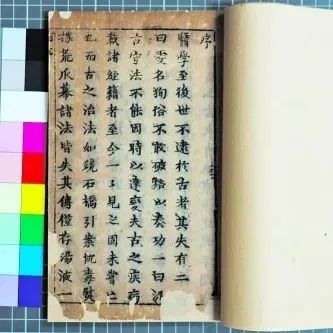 序
醫學至後世不逮於古者其失有二
曰愛名狥俗不敢破格以奏功一曰泥
古守法不能因時以達變夫古之疾病
載諸經籍者至今一一見之固未嘗亡
也而古之治法如鑱石撟引案杬毒熨
揲荒爪幕諸法皆失其傳僅存湯液一